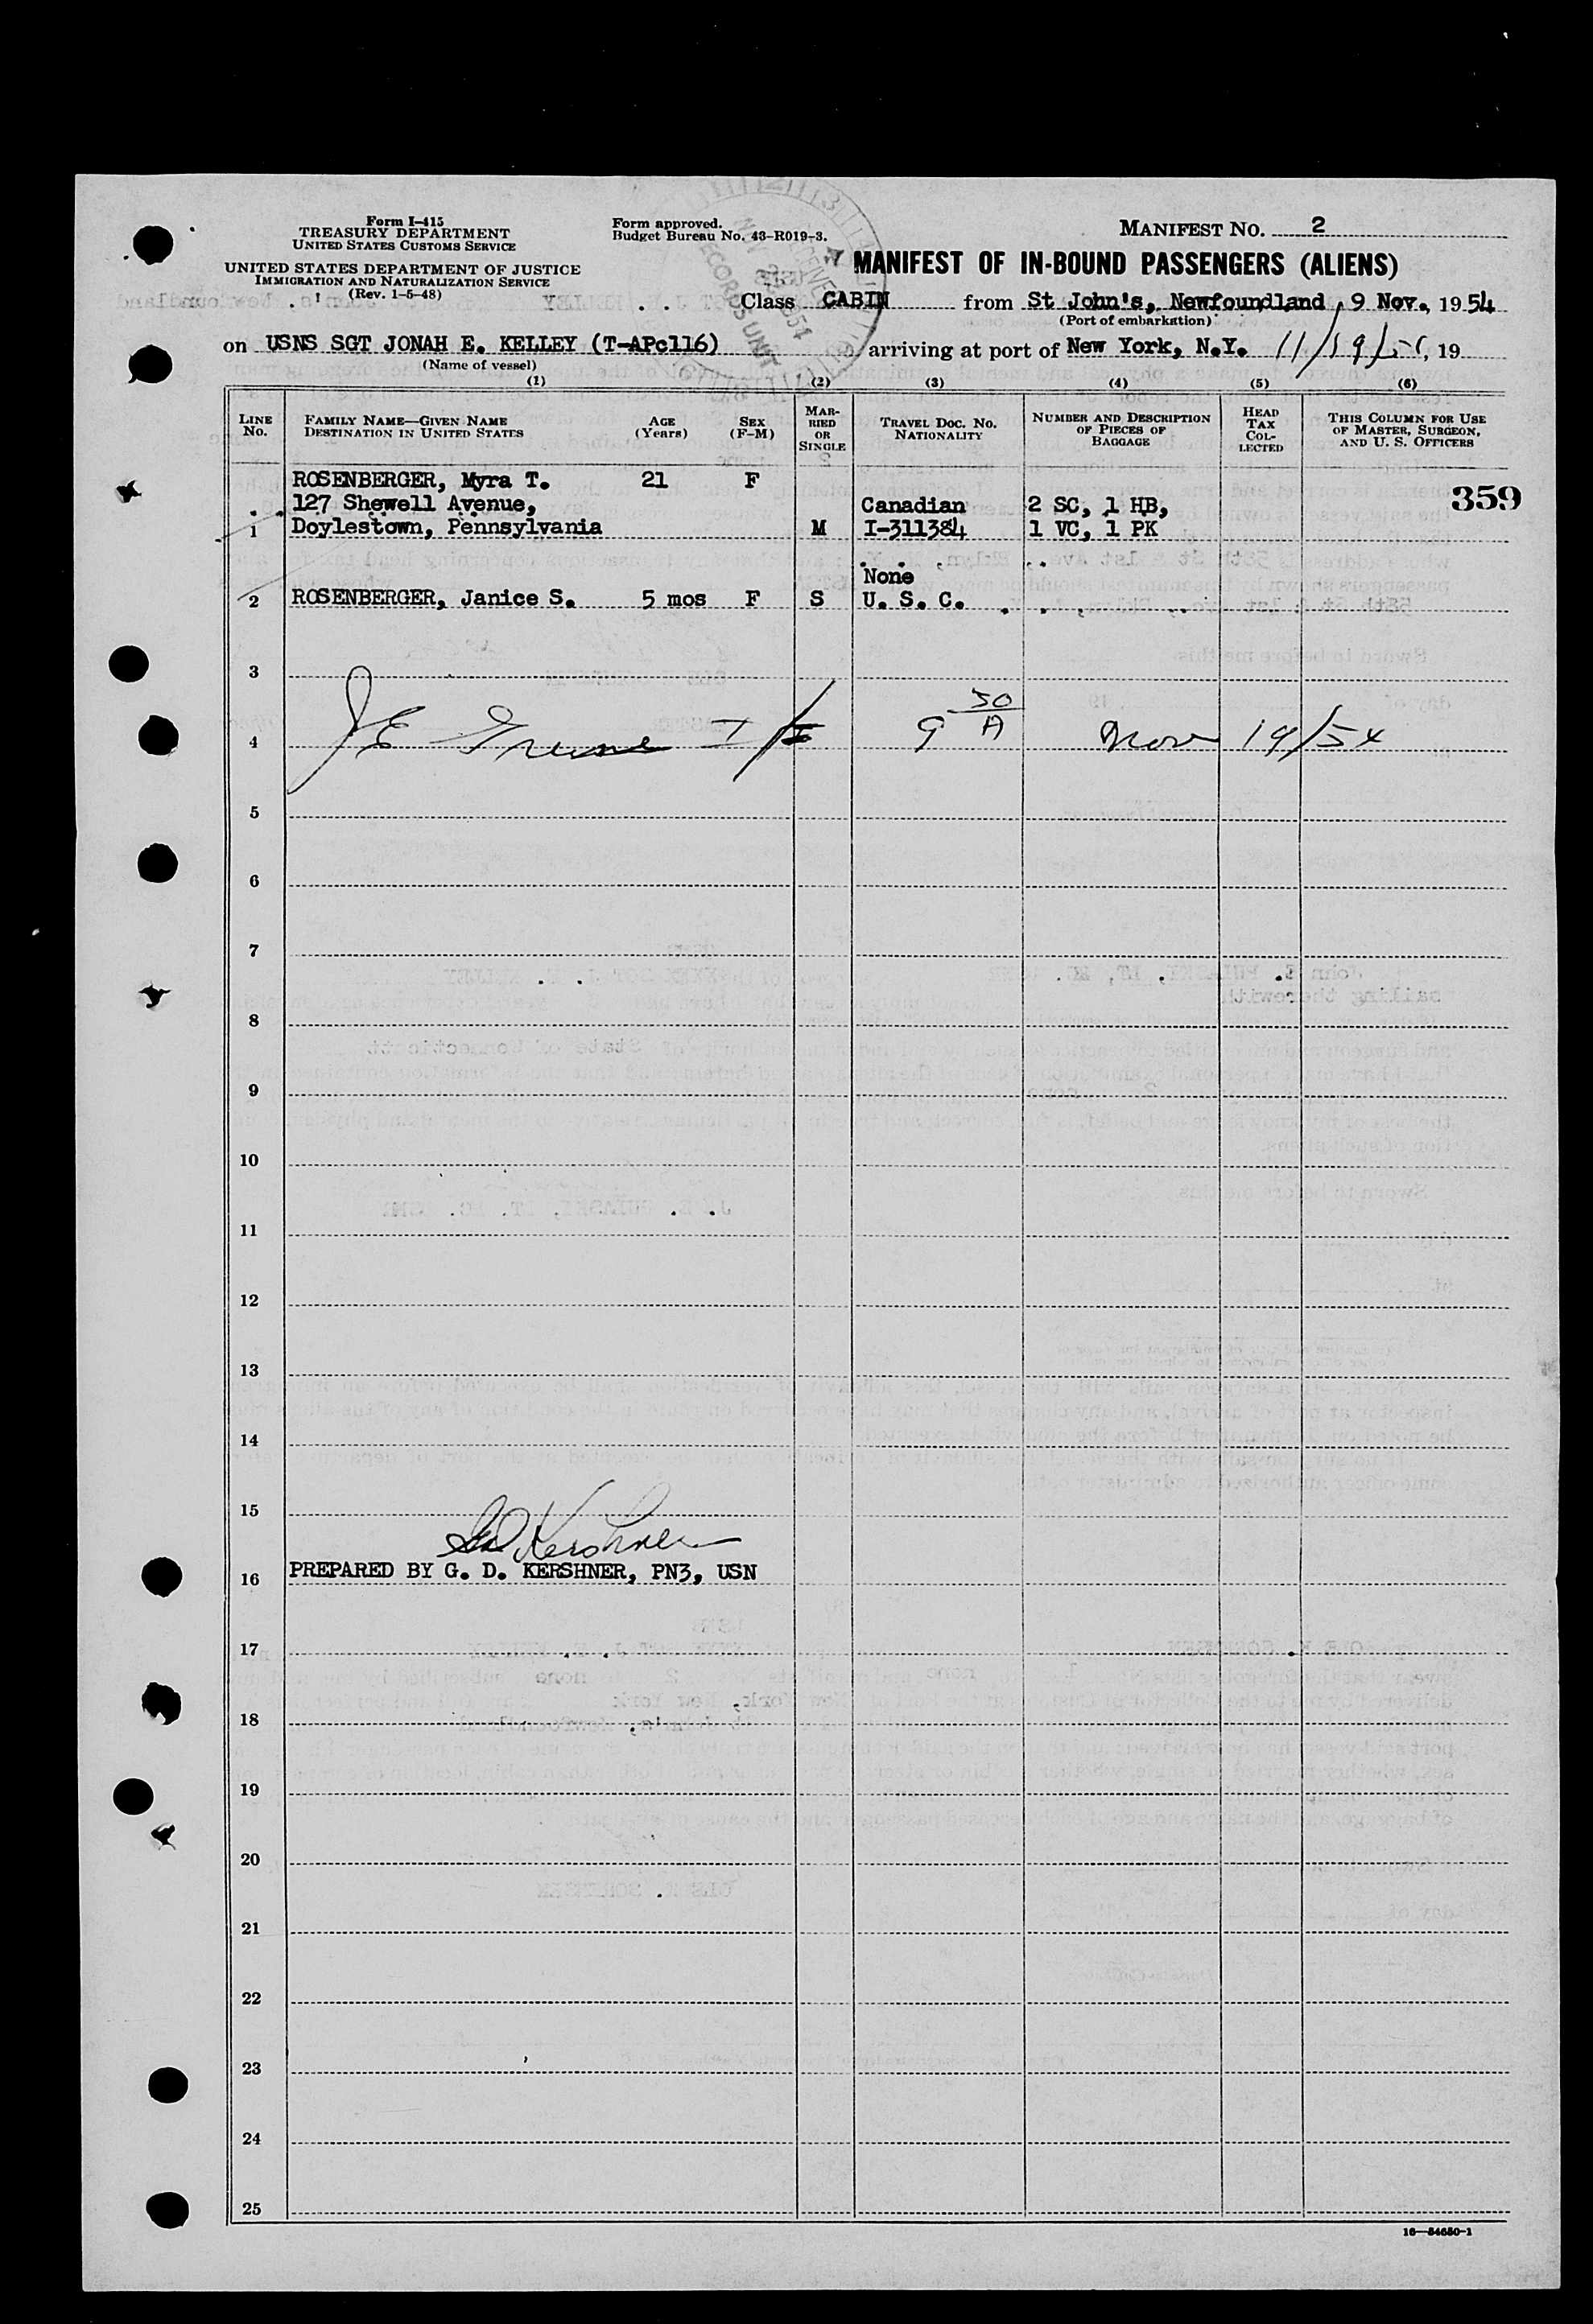 Form I-415
TREASURY DEPARTMENT
UNITED STATES CUSTOMS SERVICE
UNITED STATES DEPARTMENT OF JUSTICE
IMMIGRATION AND NATURALIZATION SERVICE
(Rev. 1-5-48)
Form approved.
Budget Bureau No. 43-R019-3.
MANIFEST NO. 2
MANIFEST OF IN-BOUND PASSENGERS (ALIENS)
Class CABIN from St John's, Newfoundland, 9 Nov., 1954
(Port of embarkation)
on USNS SGT JONAH E. KELLEY (T-APc116) arriving at port of New York, N.Y. 11/19/54, 19
(Name of vessel)
(1) (2) (3) (4) (5) (6)
LINE No. FAMILY NAME—GIVEN NAME DESTINATION IN UNITED STATES AGE (Years) SEX (F-M) MARRIED OR SINGLE TRAVEL DOC. NO. NATIONALITY NUMBER AND DESCRIPTION OF PIECES OF BAGGAGE HEAD TAX COLLECTED THIS COLUMN FOR USE OF MASTER, SURGEON, AND U. S. OFFICERS
ROSENBERGER, Myra T. 21 F
359
127 Shewell Avenue, Canadian 2 SC, 1 HB,
1 Doylestown, Pennsylvania M I-311384 1 VC, 1 PK
None
2 ROSENBERGER, Janice S. 5 mos F S U. S. C.
3
4 J E Greene 9 30/A Nov 19/54
5
6
7
8
9
10
11
12
13
14
15
G D Kershner
16 PREPARED BY G. D. KERSHNER, PN3, USN
17
18
19
20
21
22
23
24
25
16—54650-1